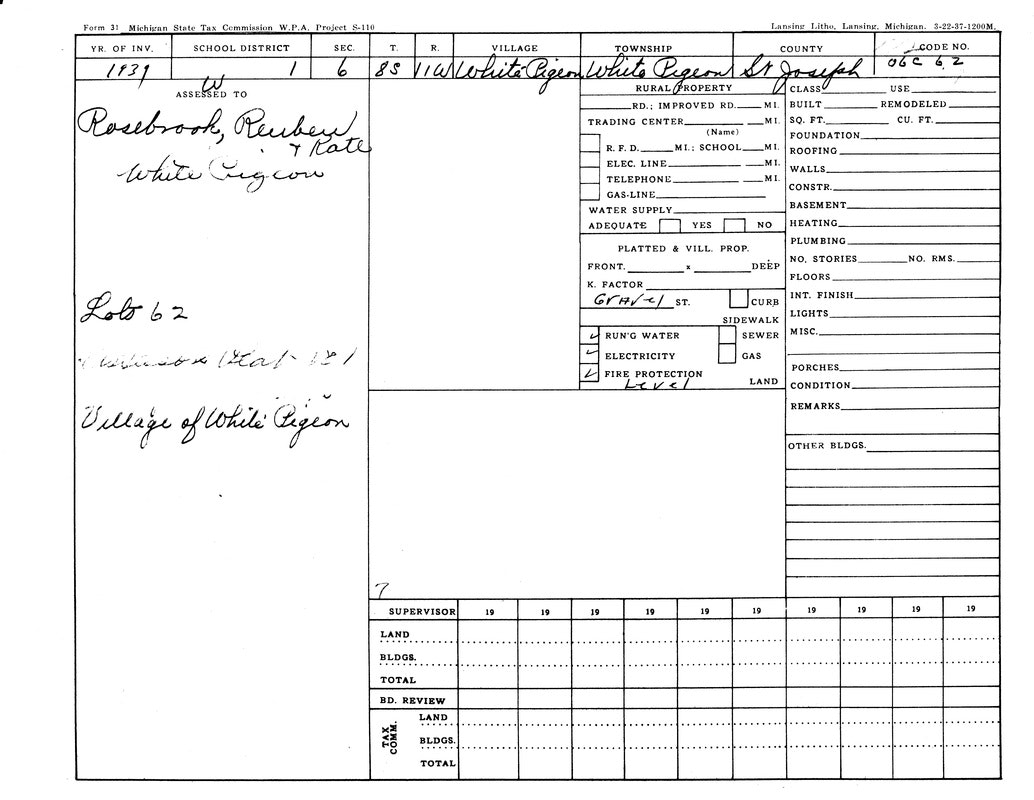 Form 31 Michigan State Tax Commission W.P.A. Project S-110
Lansing Litho, Lansing, Michigan. 3-22-37-1200M.
YR. OF INV. SCHOOL DISTRICT SEC. T. R. VILLAGE TOWNSHIP COUNTY CODE NO.
1939 1 6 8S 11W White Pigeon White Pigeon St Joseph 06C 62
W
ASSESSED TO
Rosebrook, Reuben
+ Kate
White Pigeon
Lots 62
Plat 181
Village of White Pigeon
RURAL PROPERTY
RD.; IMPROVED RD. MI.
TRADING CENTER MI.
(Name)
R. F. D. MI.; SCHOOL MI.
ELEC. LINE MI.
TELEPHONE MI.
GAS-LINE
WATER SUPPLY
ADEQUATE YES NO
PLATTED & VILL. PROP.
FRONT. x DEEP
K. FACTOR
Gravel ST. CURB
SIDEWALK
RUN'G WATER SEWER
ELECTRICITY GAS
FIRE PROTECTION
Level LAND
CLASS USE
BUILT REMODELED
SQ. FT. CU. FT.
FOUNDATION
ROOFING
WALLS
CONSTR.
BASEMENT
HEATING
PLUMBING
NO. STORIES NO. RMS.
FLOORS
INT. FINISH
LIGHTS
MISC.
PORCHES
CONDITION
REMARKS
OTHER BLDGS.
7
SUPERVISOR 19 19 19 19 19 19 19 19 19 19
LAND
BLDGS.
TOTAL
BD. REVIEW
TAX COMM.
LAND
BLDGS.
TOTAL